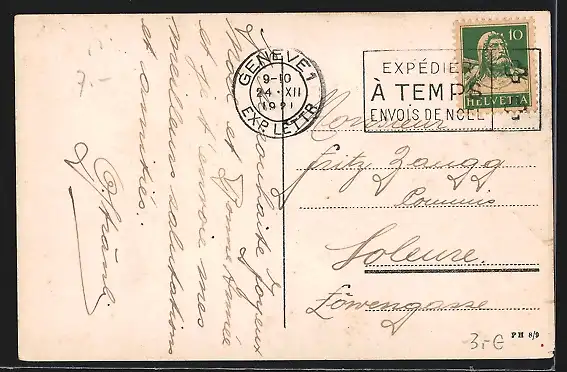 7.-
Je te souhaite joyeux
Noël et Bonne Année
et je t'envoie mes
meilleurs salutations
et amitiés.
GENÈVE 1
9-10
24. XII
1921
EXP. LETTR.
EXPÉDIEZ
À TEMPS
ENVOIS DE NOËL
10
HELVETIA
Monsieur
Fritz Zaugg
Commis
Soleure
Löwengasse
3,-€
PH 8/9